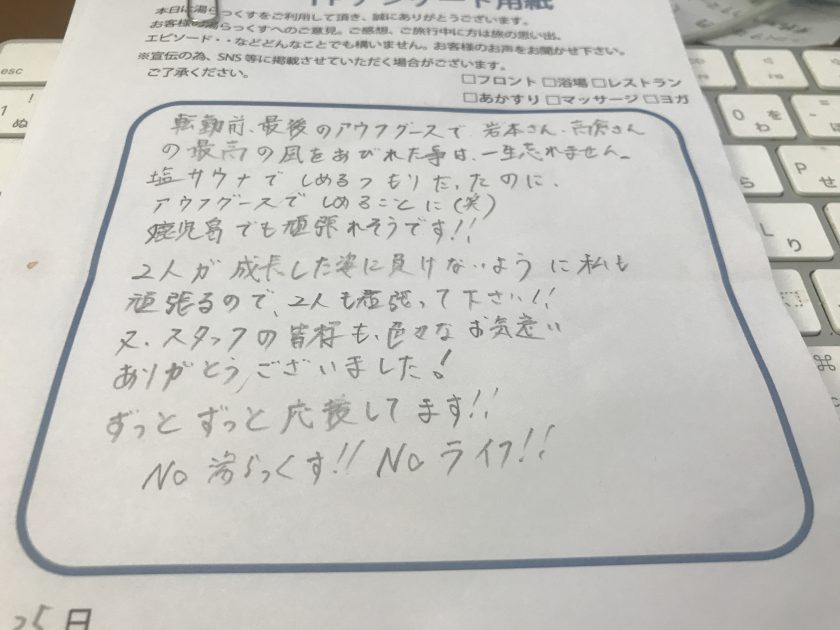 アンケート用紙
本日は湯らっくすをご利用して頂き、誠にありがとうございます。
お客様の湯らっくすへのご意見。ご感想、ご旅行中に方は旅の思い出、
エピソード・・などどんなことでも構いません。お客様のお声をお聞かせ下さい。
※宣伝の為、SNS等に掲載させていただく場合がございます。
ご了承ください。
□フロント □浴場 □レストラン
□あかすり □マッサージ □ヨガ
転勤前、最後のアウフグースで、岩本さん、さん
の最高の風をあびれた事は、一生忘れません。
塩サウナでしめるつもりだったのに、
アウフグースでしめることに(笑)
鹿児島でも頑張れそうです!!
2人が成長した姿に負けないように私も
頑張るので、2人も頑張って下さい!!
又、スタッフの皆様も、色々なお気遣い
ありがとうございました!
ずっとずっと応援してます!!
No 湯らっくす!! No ライフ!!
25日
esc
!
1
ぬ
0
を
わ
P
せ
ら
L
り
⌘